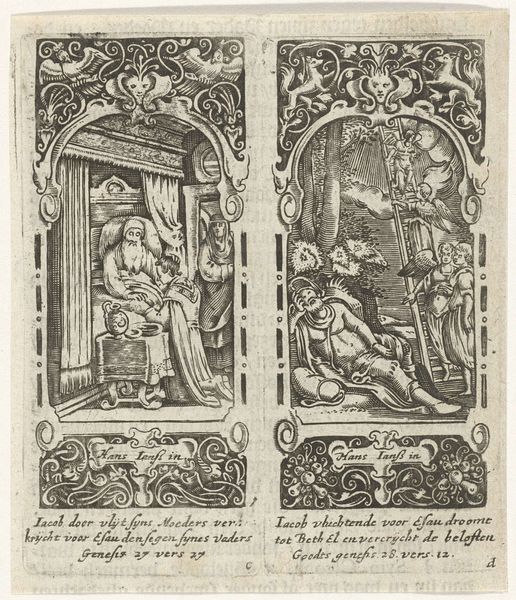 Hans Ianß in
Iacob door vlijt syns Moeders ver:
krijcht voor Esau den segen synes vaders
Genesis 27 vers 27
c
Hans Ianß in
Iacob vluchtende voor Esau droomt
tot Beth El en vercrijcht de beloften
Goodts genesis. 28. vers. 12.
d